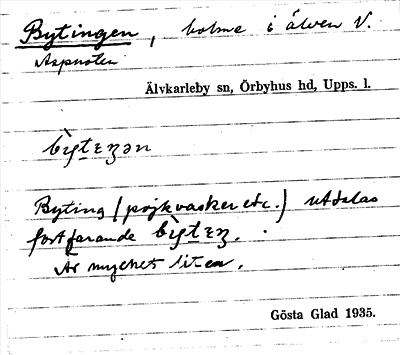 Bytingen, holme i älven V.
Aspholen
Älvkarleby sn, Örbyhus hd, Upps. l.
Byting (pojkvasker etc.) uttalas
fortfarande
Är mycket liten.
Gösta Glad 1935.